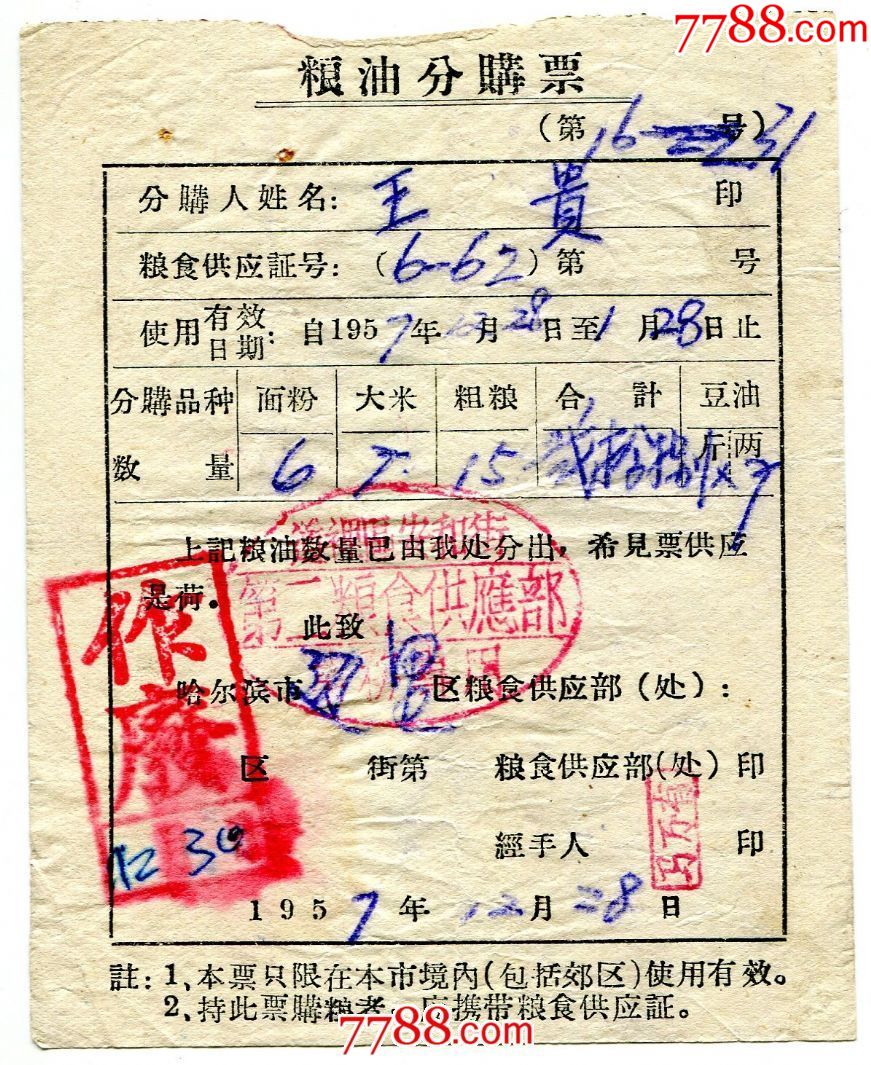 7788.com
粮油分購票
(第16 号)31
分購人姓名: 王貴 印
粮食供应証号: (6-62)第 号
使用有效日期: 自1957年12月28日至1月28日止
分購品种 面粉 大米 粗粮 合計 豆油
斤 两
数量 6 7 15 弍拾捌 7
上記粮油数量已由我处分出,希見票供应
是荷。
此致
第二粮食供應部
哈尔滨市 区粮食供应部(处):
区 街第 粮食供应部(处)印
經手人 印
1957年12月28日
作廢
12 30
註:1、本票只限在本市境內(包括郊区)使用有效。
2、持此票購粮者,应携带粮食供应証。
7788.com